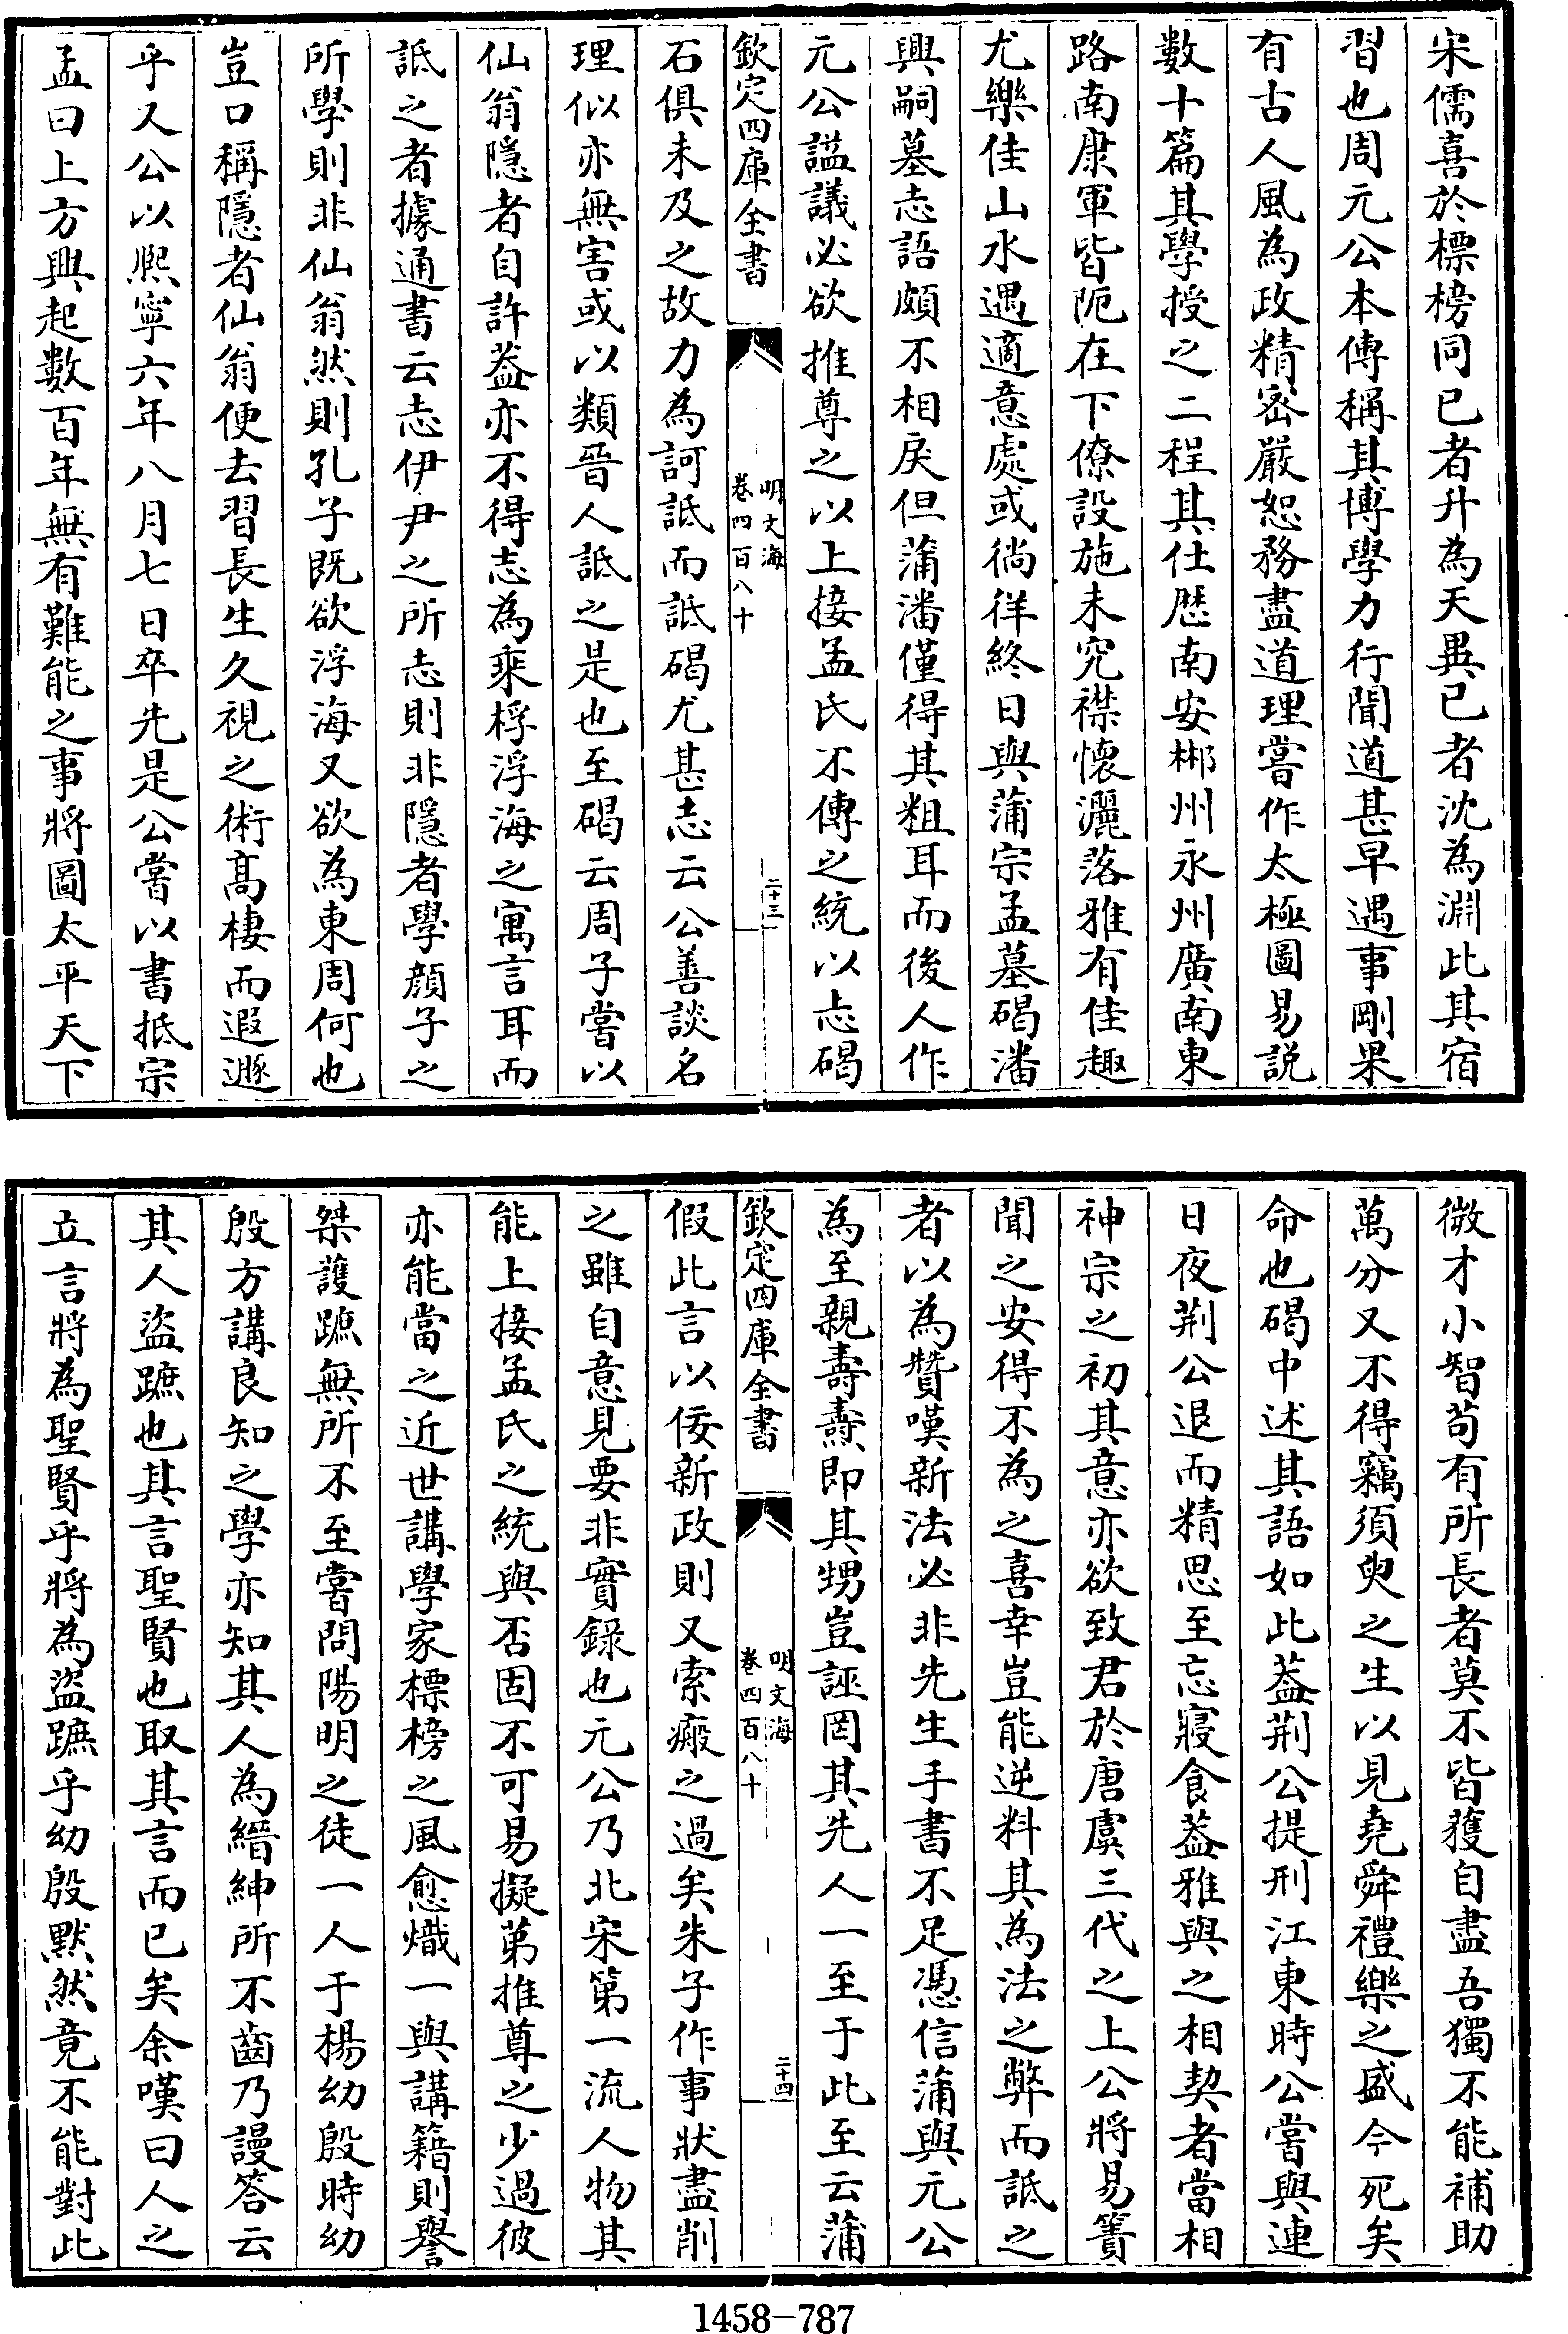 宋儒喜於標榜同已者升為天異已者沈為淵此其宿
習也周元公本傳稱其博學力行聞道甚早遇事剛果
有古人風為政精密嚴恕務盡道理嘗作太極圖易説
數十篇其學授之二程其仕歴南安郴州永州廣南東
路南康軍皆阨在下僚設施未究襟懷灑落雅有佳趣
尤樂佳山水遇適意處或徜徉終日與蒲宗孟墓碣潘
興嗣墓志語頗不相戾但蒲潘僅得其粗耳而後人作
元公謚議必欲推尊之以上接孟氏不傳之統以志碣
欽定四庫全書
明文海
卷四百八十
二十三
石俱未及之故力為訶詆而詆碣尤甚志云公善談名
理似亦無害或以類晉人詆之是也至碣云周子嘗以
仙翁隱者自許葢亦不得志為乘桴浮海之寓言耳而
詆之者據通書云志伊尹之所志則非隱者學顔子之
所學則非仙翁然則孔子既欲浮海又欲為東周何也
豈口稱隱者仙翁便去習長生久視之術髙棲而遐遯
乎又公以熈寧六年八月七日卒先是公嘗以書抵宗
孟曰上方興起數百年無有難能之事將圖太平天下
微才小智茍有所長者莫不皆獲自盡吾獨不能補助
萬分又不得竊須臾之生以見堯舜禮樂之盛今死矣
命也碣中述其語如此葢荆公提刑江東時公嘗與連
日夜荆公退而精思至忘寢食葢雅與之相契者當相
神宗之初其意亦欲致君於唐虞三代之上公將易簀
聞之安得不為之喜幸豈能逆料其為法之弊而詆之
者以為贊嘆新法必非先生手書不足憑信蒲與元公
為至親壽燾即其甥豈誣罔其先人一至于此至云蒲
欽定四庫全書
明文海
卷四百八十
二十四
假此言以佞新政則又索瘢之過矣朱子作事狀盡削
之雖自意見要非實錄也元公乃北宋第一流人物其
能上接孟氏之統與否固不可易擬苐推尊之少過彼
亦能當之近世講學家標榜之風愈熾一與講籍則譽
桀護蹠無所不至嘗問陽明之徒一人于楊幼殷時幼
殷方講良知之學亦知其人為縉紳所不齒乃謾答云
其人盜蹠也其言聖賢也取其言而已矣余嘆曰人之
立言將為聖賢乎將為盜蹠乎幼殷默然竟不能對此
1458-787